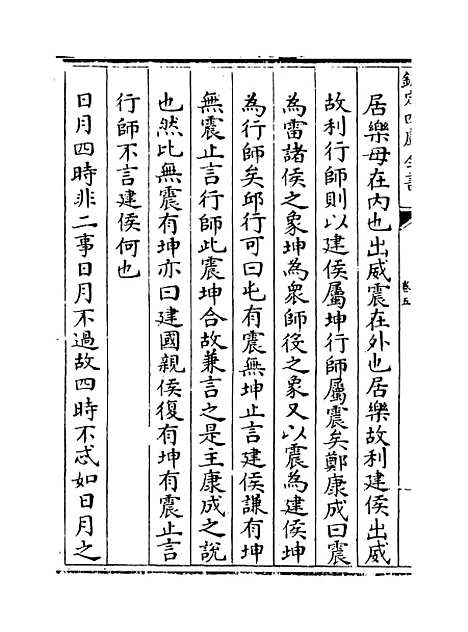 欽定四庫全書
卷五
居樂母在內也出威震在外也居樂故利建侯出威
故利行師則以建侯屬坤行師屬震矣鄭康成曰震
為雷諸侯之象坤為衆師役之象又以震為建侯坤
為行師矣邱行可曰屯有震無坤止言建侯謙有坤
無震止言行師此震坤合故兼言之是主康成之說
也然比無震有坤亦曰建國親侯復有坤有震止言
行師不言建侯何也
日月四時非二事日月不過故四時不忒如日月之